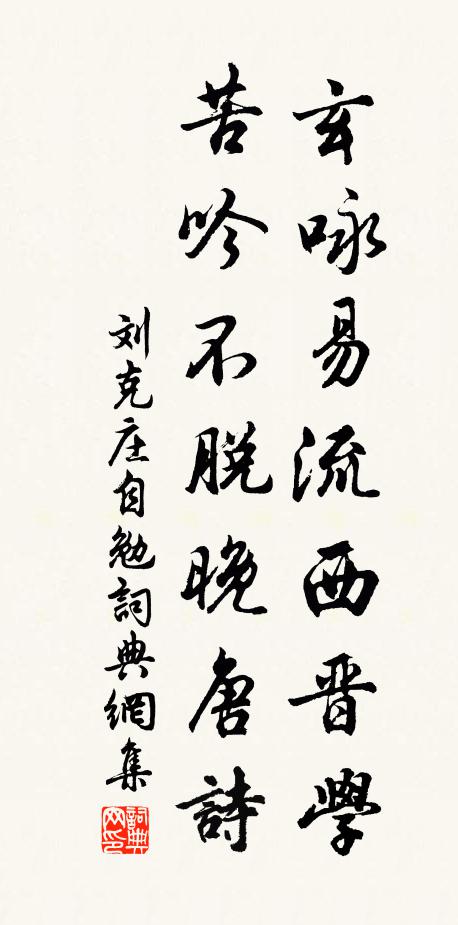 玄咏易流西晋學
苦吟不脱晚唐詩
刘克庄自勉詞典網集
詞典网印